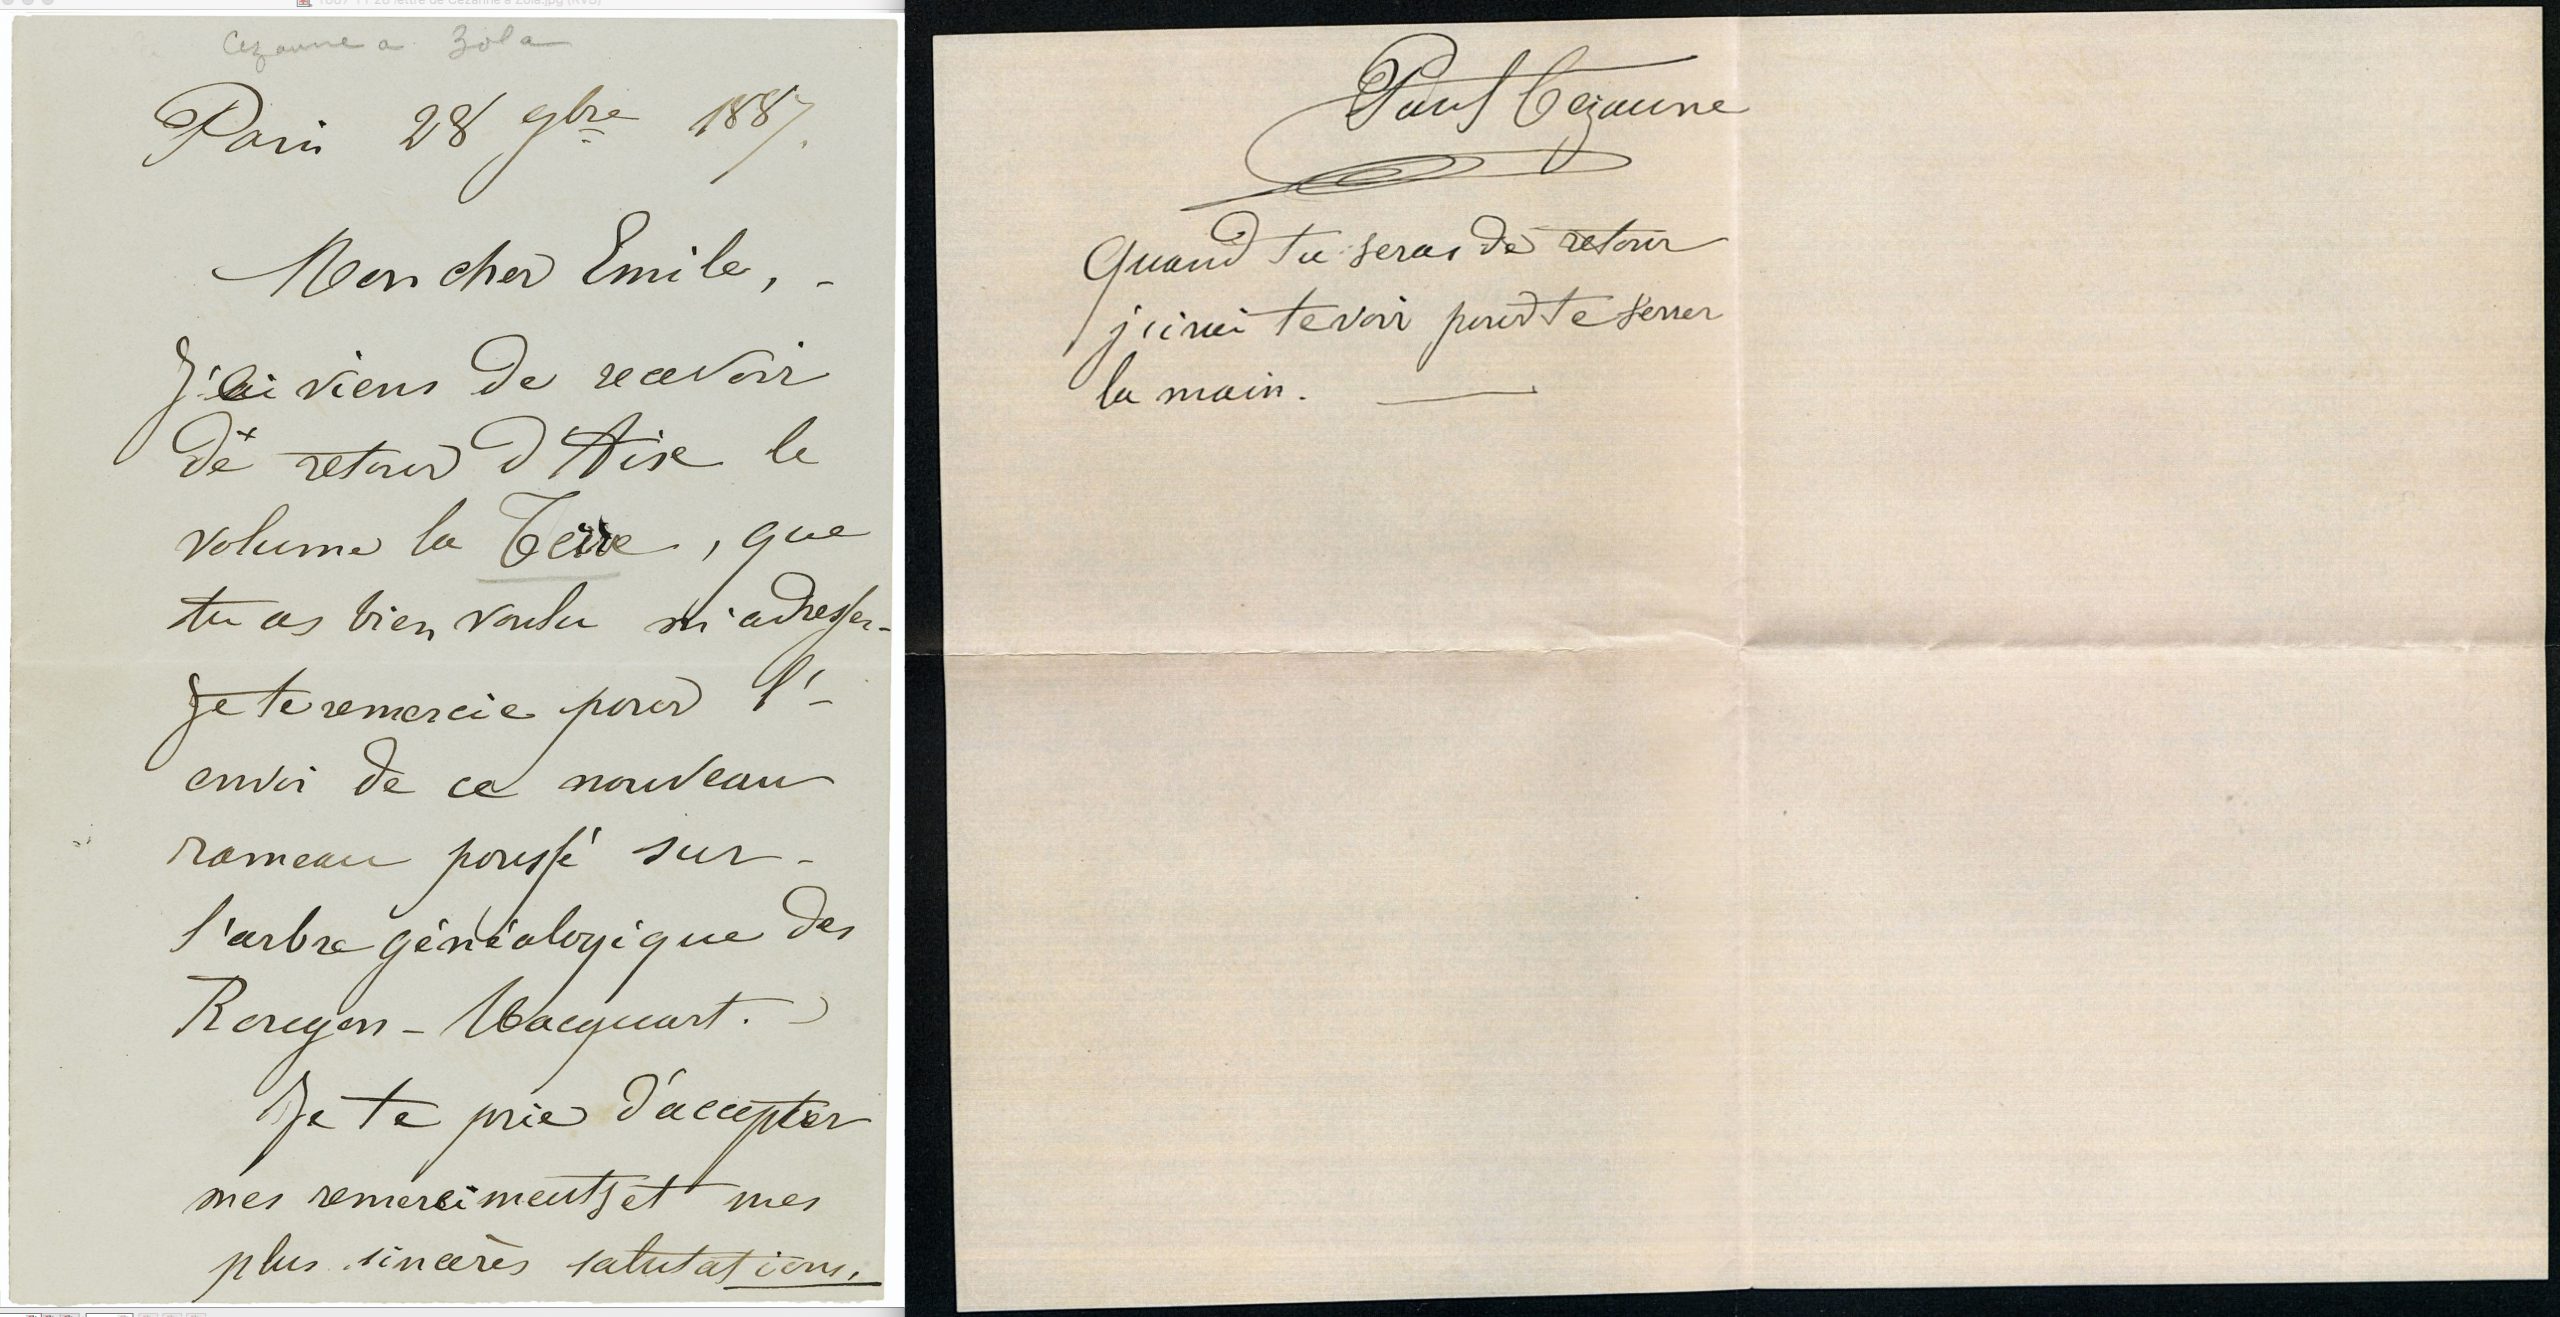 Cezanne a Zola
Paris 28 9bre 1887.
Mon cher Emile, -
J'ai viens de recevoir
de retour d'Aix le
volume la Terre, que
tu as bien voulu m'adresser-
Je te remercie pour l'-
envoi de ce nouveau
rameau poussé sur -
l'arbre généalogique des
Rougon - Macquart.
Je te prie d'accepter
mes remerciments et mes
plus sincères salutations,
Paul Cezanne
Quand tu seras de retour
j'irai te voir pour te serrer
la main.